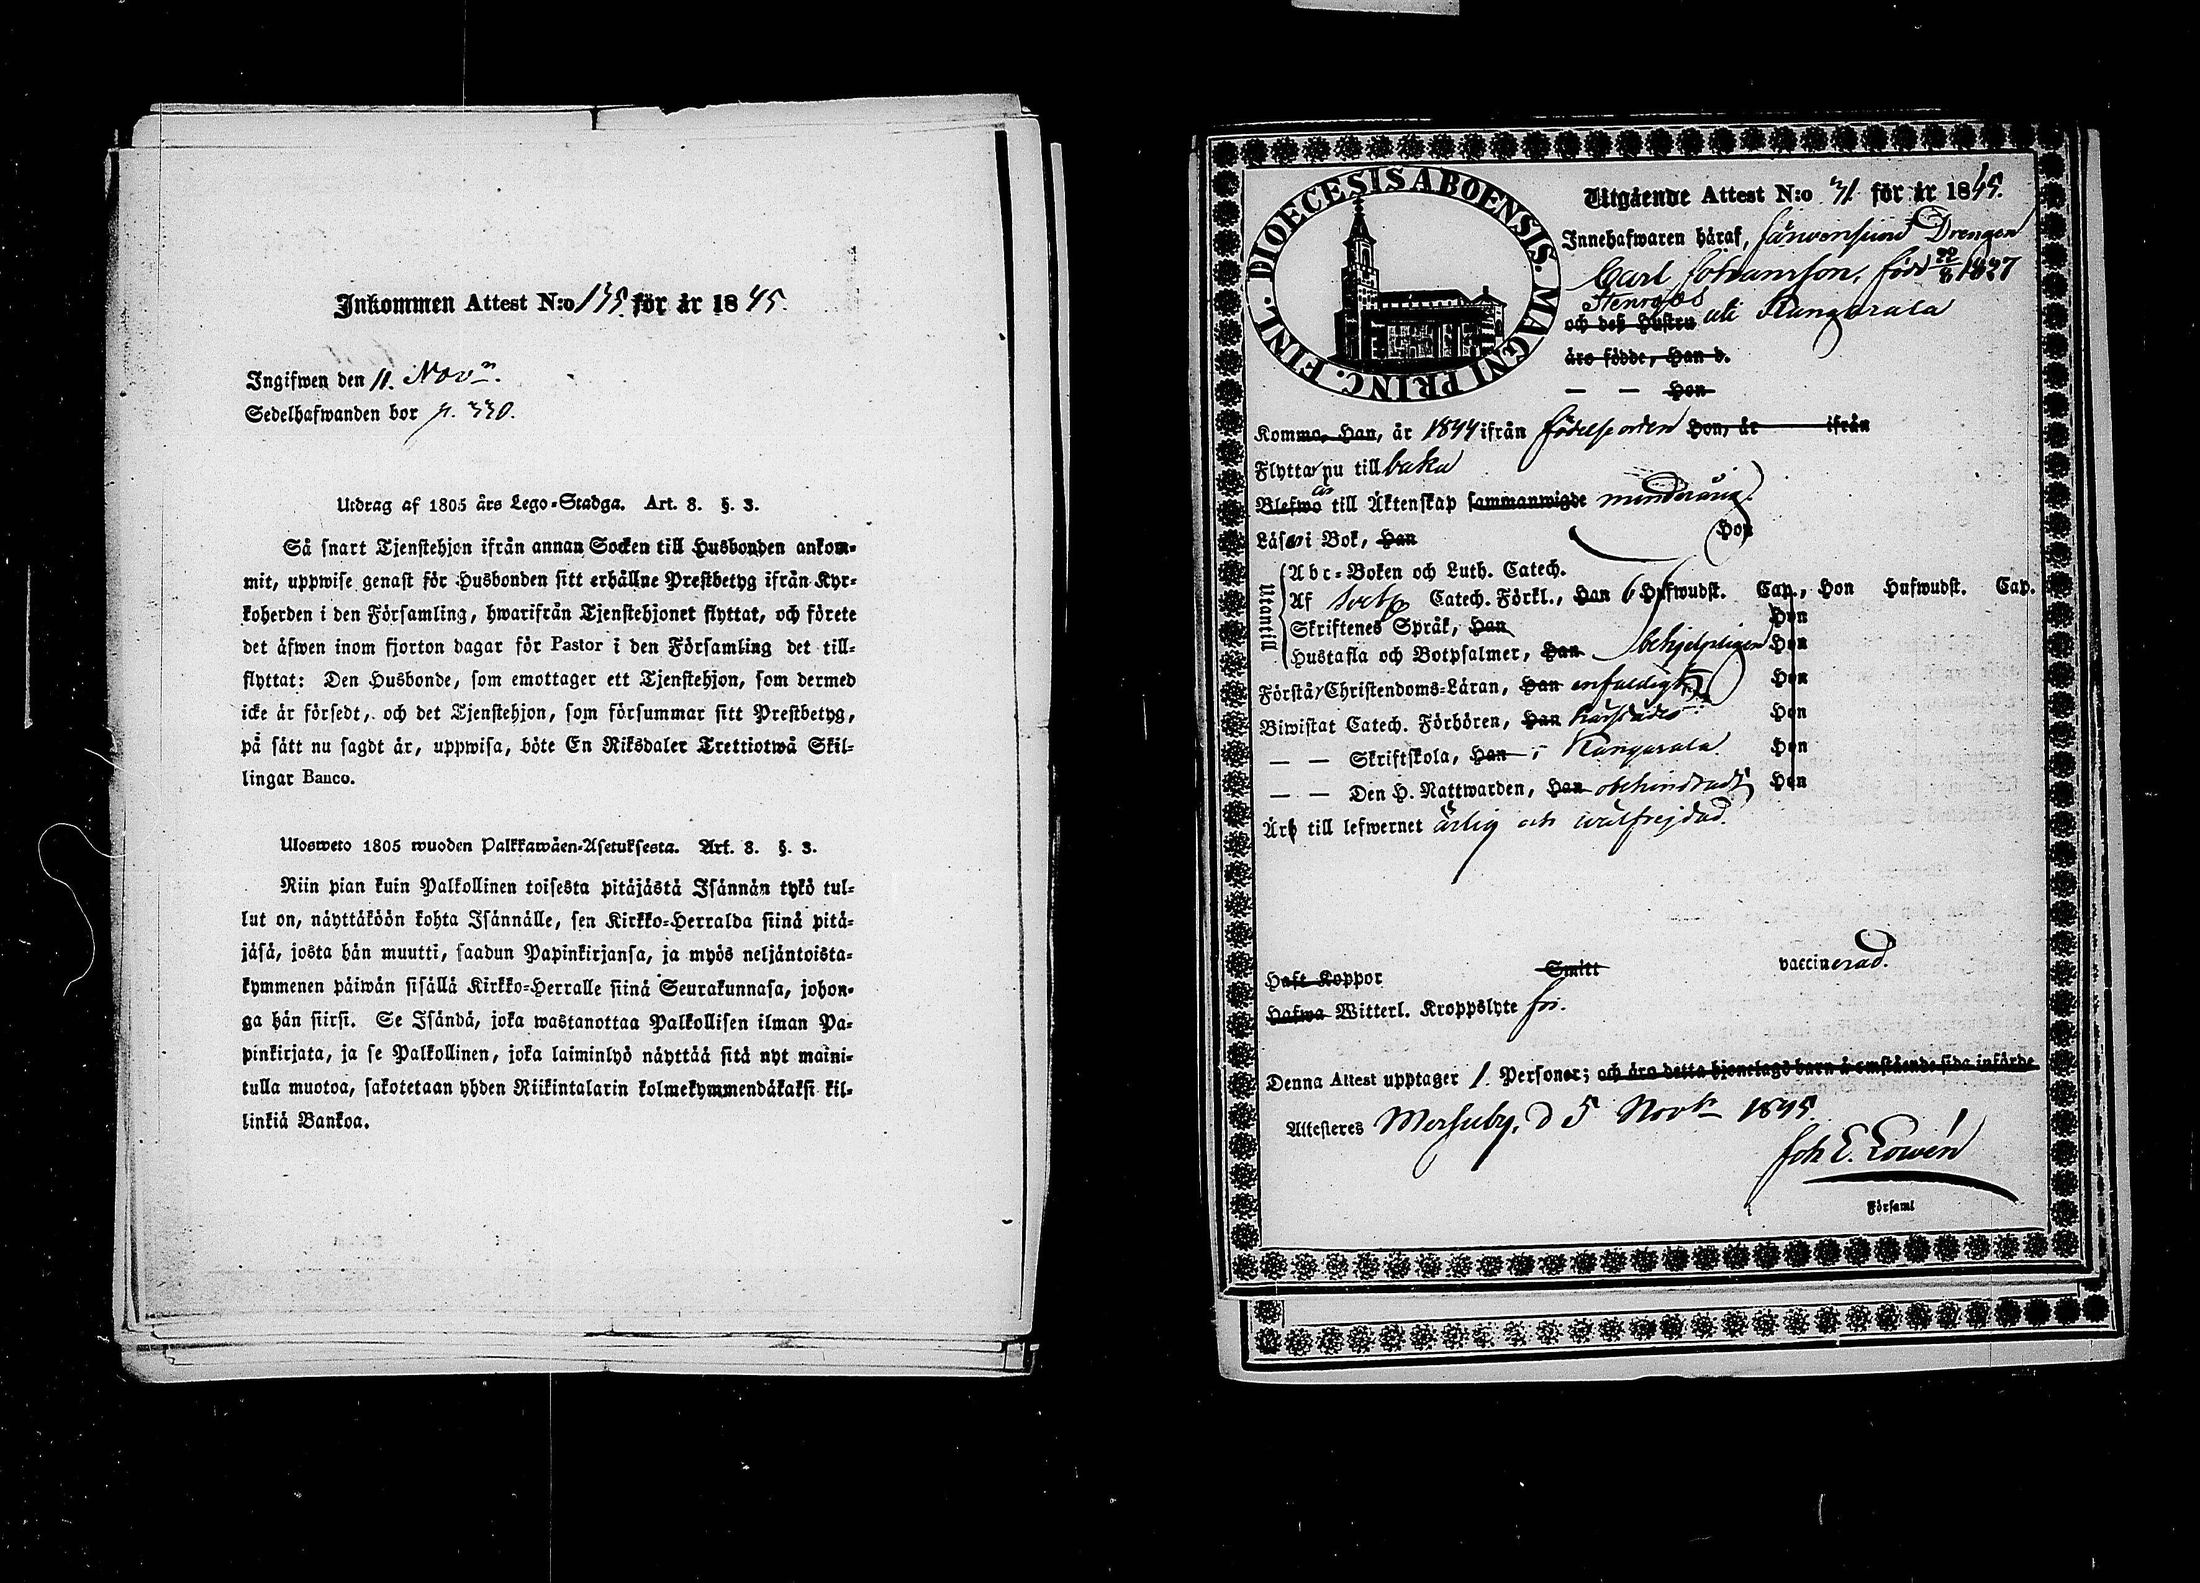 Inkommen Attest N:o 135. för år 1845.
Ingifwen den 11. Novn.
Sedelhafwanden bor p. 330.
Utdrag af 1805 års Lego-Stadga. Art. 8. §. 3.
Så snart Tjenstehjon ifrån annan Socken till Husbonden ankom-
mit, uppwise genast för Husbonden sitt erhållne Prestbetyg ifrån Kyr-
koherden i den Församling, hwarifrån Tjenstehjonet flyttat, och förete
det äfwen inom fjorton dagar för Pastor i den Församling det till-
flyttat: Den Husbonde, som emottager ett Tjenstehjon, som dermed
icke är försedt, och det Tjenstehjon, som försummar sitt Prestbetyg,
på sätt nu sagdt är, uppwisa, böte En Riksdaler Trettiotwå Skil-
lingar Banco.
Ulosweto 1805 wuoden Palkkawäen-Asetuksesta. Art. 8. §. 3.
Niin pian kuin Palkollinen toisesta pitäjästä Isännän tykö tul-
lut on, näyttäköön kohta Isännälle, sen Kirkko-Herralda siinä pitä-
jäsä, josta hän muutti, saadun Papinkirjansa, ja myös neljäntoista-
kymmenen päiwän sisällä Kirkko-Herralle siinä Seurakunnasa, johon-
ga hän siirsi. Se Isändä, joka wastanottaa Palkollisen ilman Pa-
pinkirjata, ja se Palkollinen, joka laiminlyö näyttää sitä nyt maini-
tulla muotoa, sakotetaan yhden Riikintalarin kolmekymmendäkaksi kil-
linkiä Bankoa.
DIOECESIS ABOENSIS. MAGNI PRINC. FINL.
Utgående Attest N:o 31. för år 1845.
Innehafwaren häraf, Drengen
Carl Johansson, född 22/8 1827
och deß Hustru uti Kangasala
äro födde, Han d.
— — Hon
Kommo, Han, år 1844 ifrån födelseorten Hon, år ifrån
Flyttar nu till baka
Blefwo till Äktenskap sammanwigde minderårig.
Läser i Bok, Han Hon
Utantill
Abc-Boken och Luth. Catech.
Af Catech. Förkl., Han 6 Hufwudst. Cap., Hon Hufwudst. Cap.
Skriftenes Språk, Han Hon
Hustafla och Botpsalmer, Han behjelpligen Hon
Förstår Christendoms-Läran, Han enfaldigt Hon
Biwistat Catech. Förhören, Han Hon
— — Skriftskola, Han i Kangasala Hon
— — Den H. Nattwarden, Han obehindradt Hon
Är till lefwernet ärlig och wälfrejdad.
Haft Koppor Smitt vaccinerad.
Hafwa Witterl. Kroppslyte fri.
Denna Attest upptager 1. Personer; och äro detta hjonelags barn å omstående sida införde
Attesteres Messuby, d 5 Novbr 1845.
Joh E. Lowén
Församl